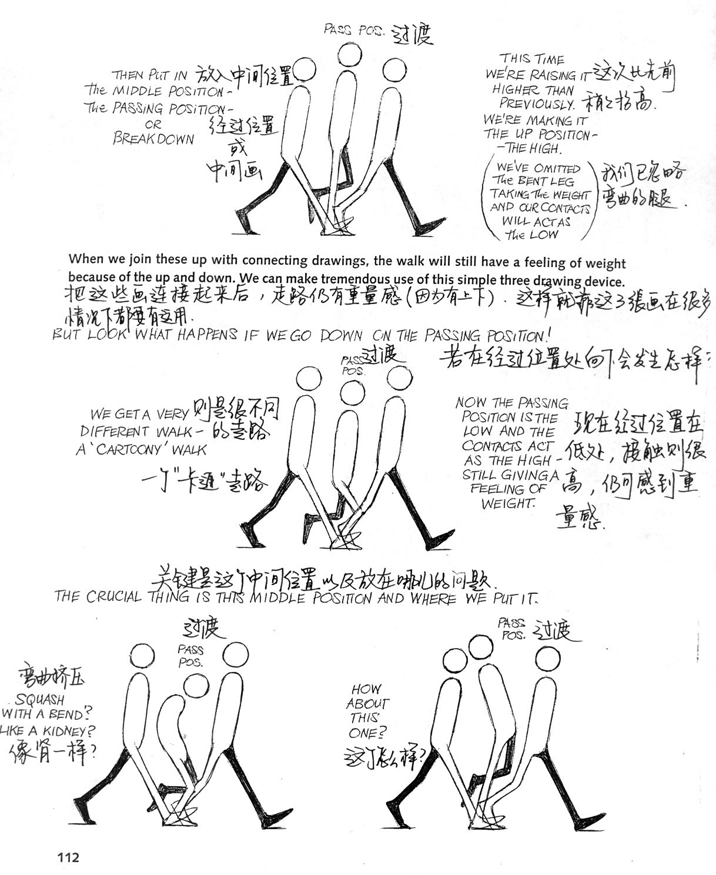 PASS POS. 过渡
THEN PUT IN 放入中间位置
the MIDDLE POSITION-
the PASSING POSITION-
OR 经过位置
BREAKDOWN 或
中间画
THIS TIME
WE'RE RAISING IT 这次比先前
HIGHER THAN
PREVIOUSLY. 稍稍抬高.
WE'RE MAKING IT
THE UP POSITION-
-THE HIGH.
WE'VE OMITTED
the BENT LEG 我们已忽略
TAKING the WEIGHT 弯曲的腿.
AND OUR CONTACTS
WILL ACT AS
the LOW
When we join these up with connecting drawings, the walk will still have a feeling of weight
because of the up and down. We can make tremendous use of this simple three drawing device.
把这些画连接起来后，走路仍有重量感(因为有上下). 这样就靠这3张画在很多
情况下都有运用.
BUT LOOK WHAT HAPPENS IF WE GO DOWN ON THE PASSING POSITION!
若在经过位置处向下会发生怎样?
PASS 过渡
POS.
WE GET A VERY 则是很不同
DIFFERENT WALK- 的走路
A 'CARTOONY' WALK
一个"卡通"走路
NOW THE PASSING
POSITION IS THE 现在经过位置在
LOW AND THE
CONTACTS ACT 低处，接触则很
AS THE HIGH-
STILL GIVING A 高，仍可感到重
FEELING OF
WEIGHT. 量感.
关键是这个中间位置以及放在哪儿的问题.
THE CRUCIAL THING IS THIS MIDDLE POSITION AND WHERE WE PUT IT.
过渡
PASS
POS.
弯曲挤压
SQUASH
WITH A BEND?
LIKE A KIDNEY?
像肾一样?
PASS
POS. 过渡
HOW
ABOUT
THIS
ONE?
这个怎么样?
112